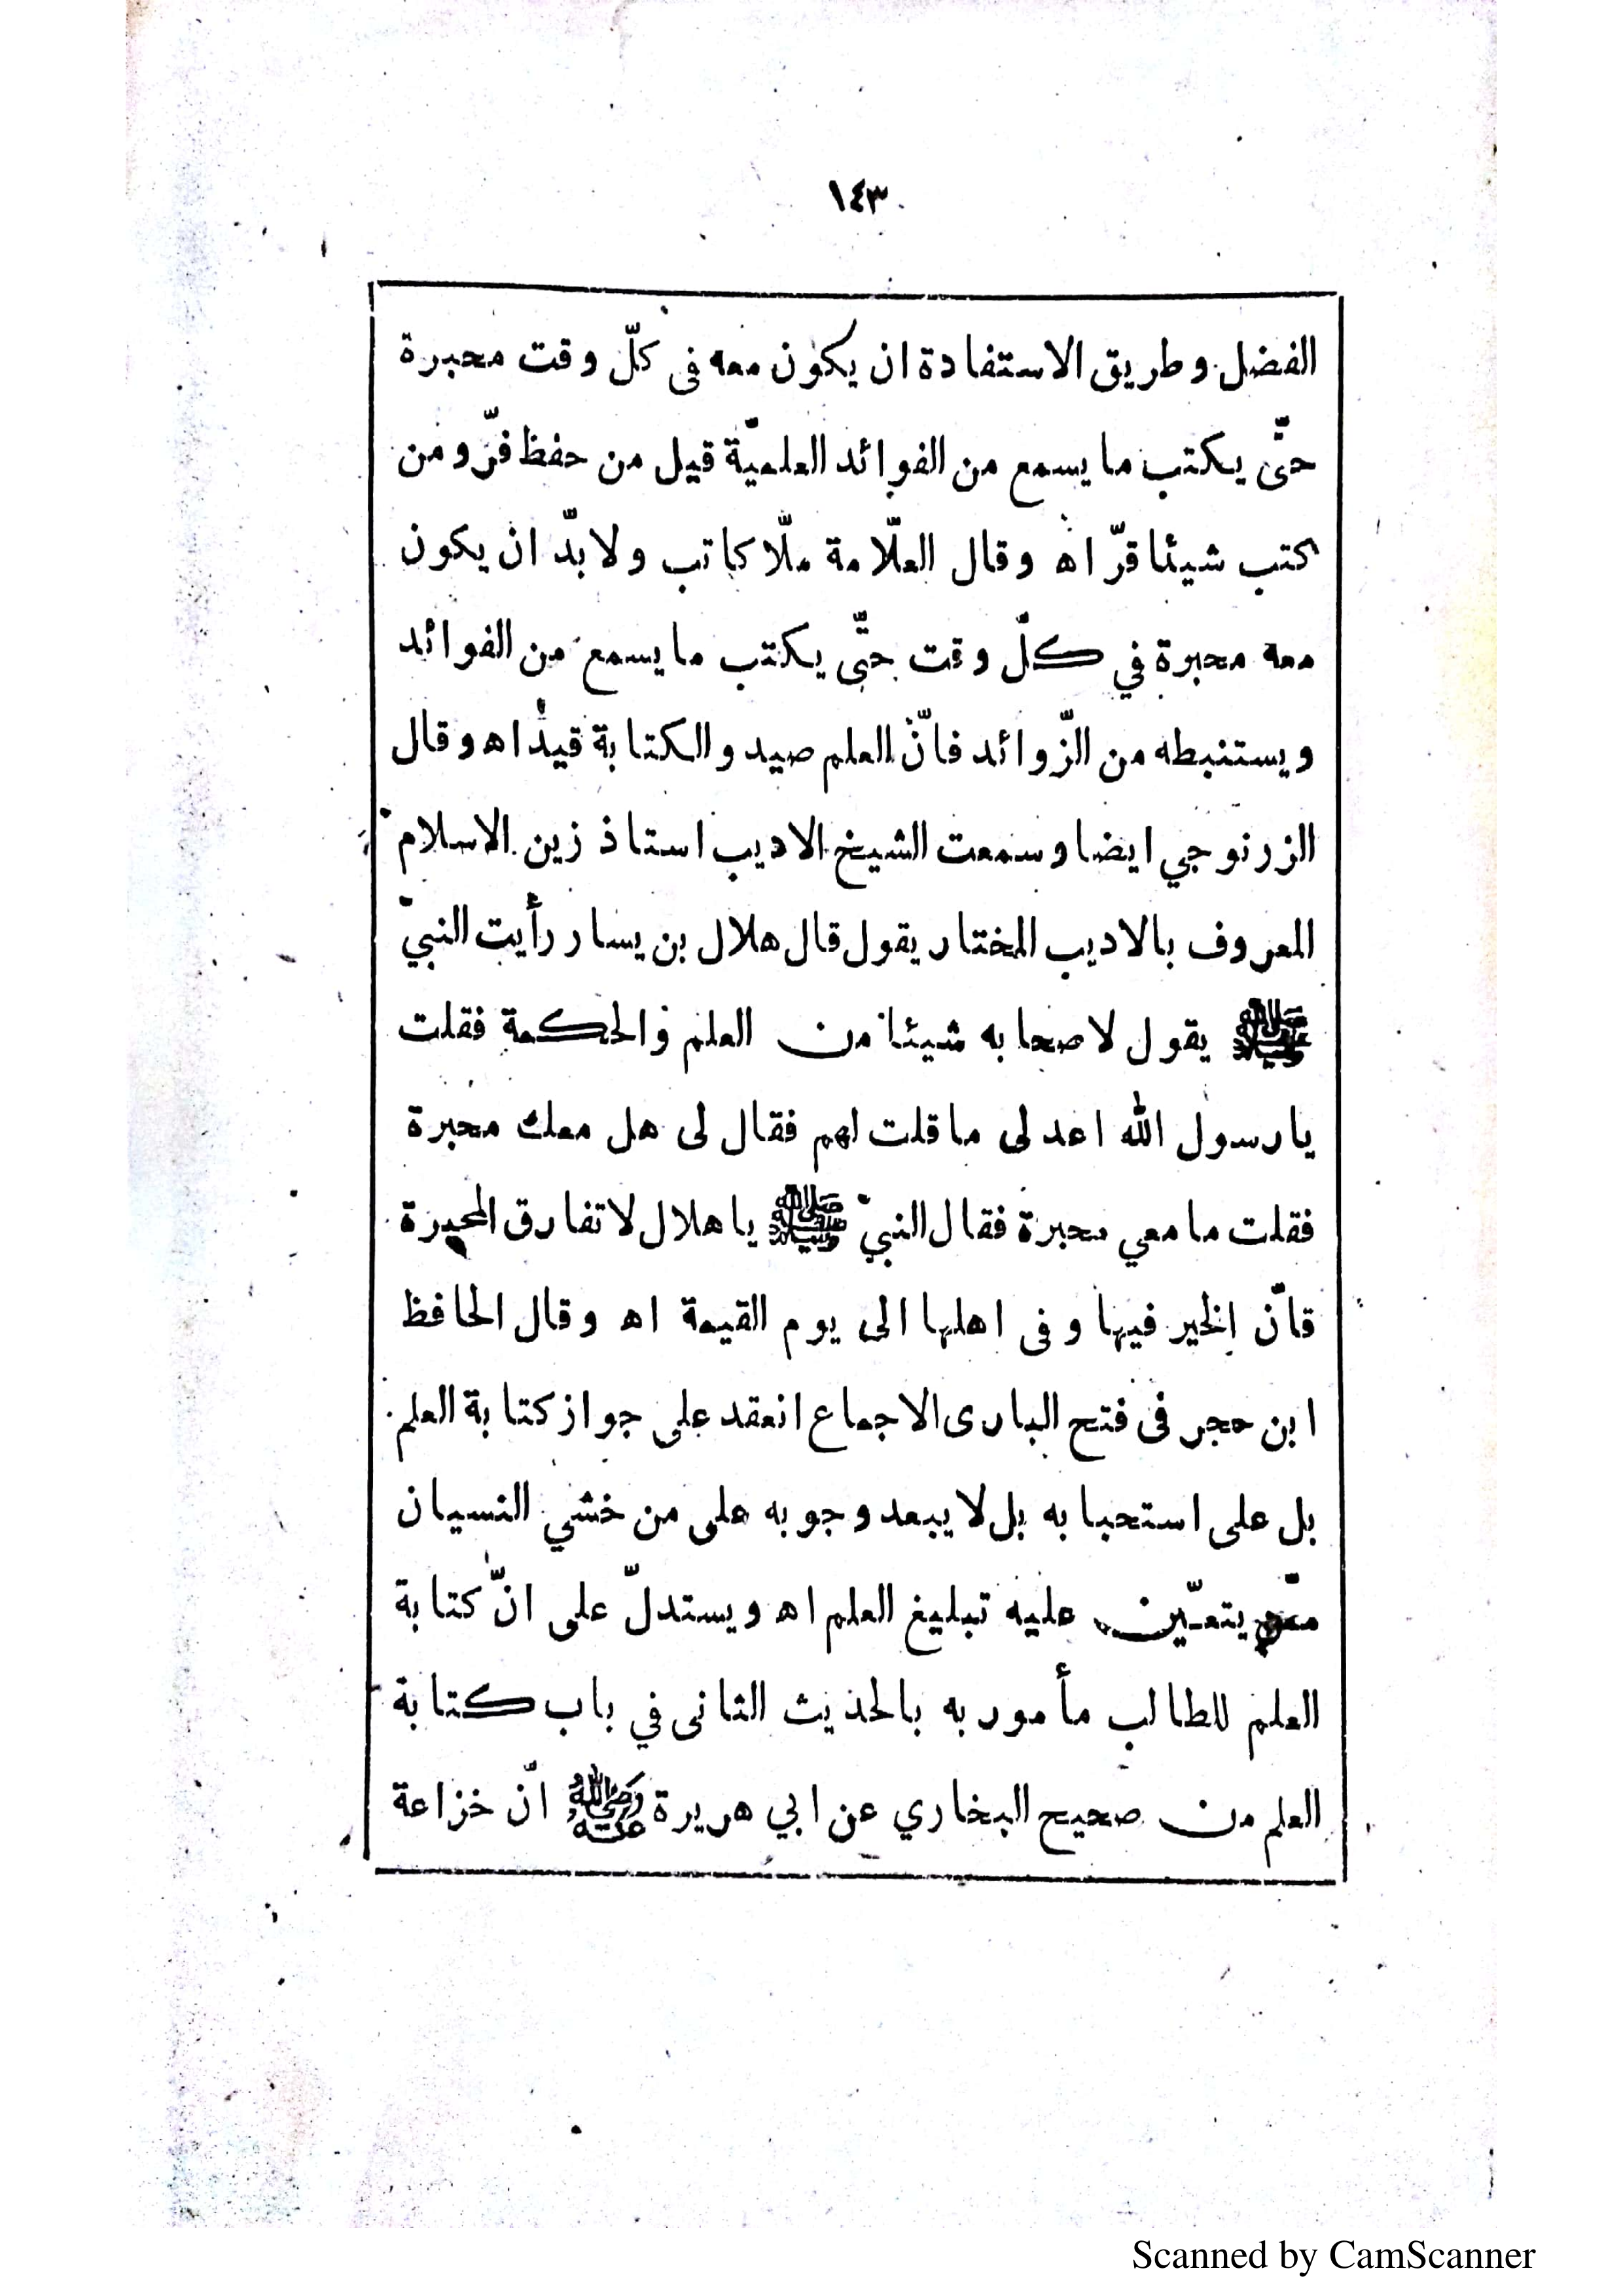 ١٤٣
الفضل وطريق الاستفادة ان يكون معه فى كلّ وقت محبرة
حتّى يكتب ما يسمع من الفوائد العلميّة قيل من حفظ فرّ ومن
كتب شيئا قرّ اه وقال العلّامة ملّا كاتب ولا بدّ ان يكون
معه محبرة في كلّ وقت حتّى يكتب ما يسمع من الفوائد
ويستنبطه من الزّوائد فانّ العلم صيد والكتابة قيد اه وقال
الزرنوجي ايضا وسمعت الشيخ الاديب استاذ زين الاسلام
المعروف بالاديب المختار يقول قال هلال بن يسار رأيت النبيّ
ﷺ يقول لاصحابه شيئا من العلم والحكمة فقلت
يا رسول الله اعد لى ما قلت لهم فقال لى هل معك محبرة
فقلت ما معي محبرة فقال النبيّ ﷺ يا هلال لا تفارق المحبرة
فانّ الخير فيها وفى اهلها الى يوم القيمة اه وقال الحافظ
ابن حجر فى فتح البارى الاجماع انعقد على جواز كتابة العلم
بل على استحبابه بل لا يبعد وجوبه على من خشي النسيان
ممّن يتعيّن عليه تبليغ العلم اه ويستدلّ على انّ كتابة
العلم للطالب مأمور به بالحديث الثانى في باب كتابة
العلم من صحيح البخاري عن ابي هريرة رضي الله عنه انّ خزاعة
Scanned by CamScanner